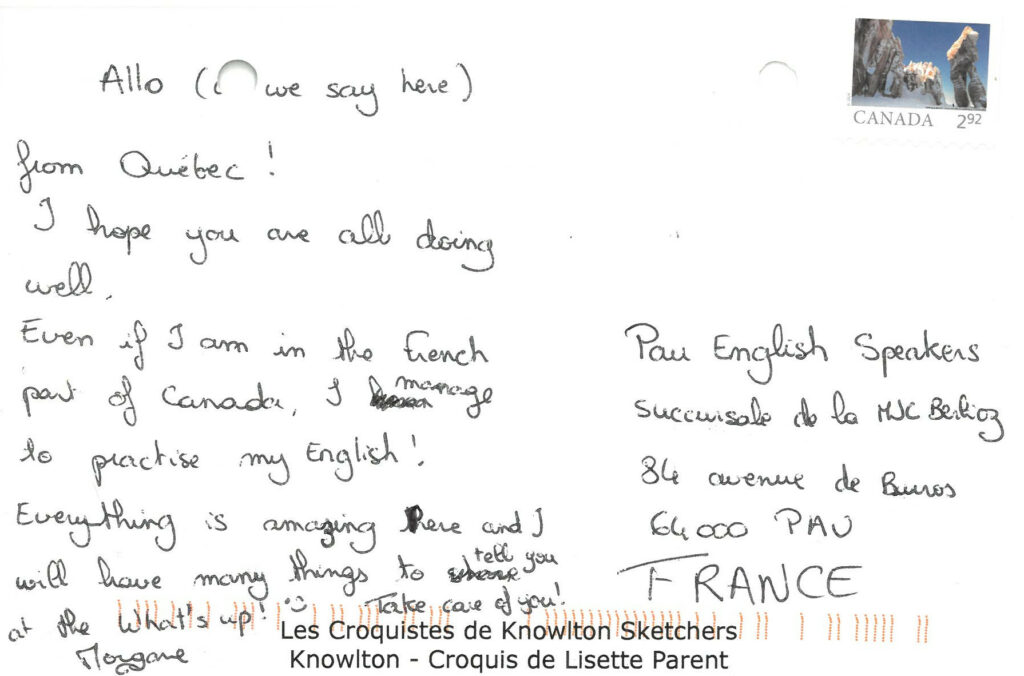 Allo ( we say here)
from Québec !
I hope you are all doing
well.
Even if I am in the French
part of Canada, I manage
to practise my English !
Everything is amazing here and I
will have many things to tell you
at the What's up! :) Take care of you!
Morgane
CANADA 2.92
Pau English Speakers
succursale de la MJC Berlioz
84 avenue de Buros
64000 PAU
FRANCE
Les Croquistes de Knowlton Sketchers
Knowlton - Croquis de Lisette Parent